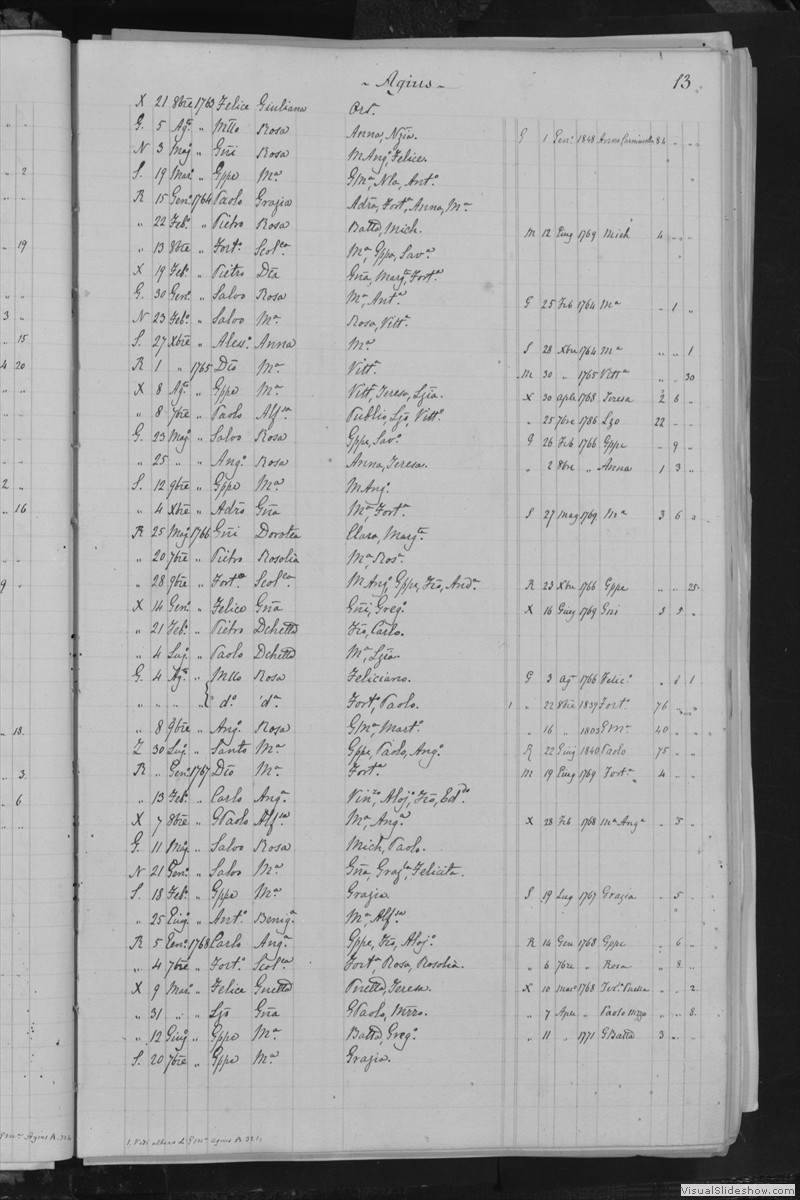 - Agius - 13
X 21 8bre 1763 Felice Giuliana Ors.
G. 5 Ago. „ Mtto Rosa Anna, Nzia. G 1 Gen. 1848 Anna 84 „ „
N 3 Mag. „ Gni Rosa M Ang. Felice.
S. 19 Mar. „ Gppe Ma G Ma, Nla, Anto.
R 15 Gen. 1764 Paolo Grazia Adro, Forto, Anna, Ma
„ 22 Feb. „ Pietro Rosa Batta, Mich. M 12 1769 Mich 4 „ „
„ 13 9bre „ Forto. Scolca Ma, Gppa, Sava
X 19 Feb. „ Pietro Dta Gna, Marga, Forta
G. 30 Gen. „ Salvo Rosa Ma, Anta G 25 Feb 1764 Ma „ 1 „
N 23 Feb. „ Salvo Ma Rosa, Vitta
S. 27 Xbre „ Aless. Anna Ma S 28 Xbre 1764 Ma „ „ 1
R 1 „ 1765 Dto Ma Vitta M 30 „ 1765 Vitta „ „ 30
X 8 Ag. „ Gppe Ma Vitta, Teresa, Lzia. X 30 aple 1768 Teresa 2 6 „
„ 8 7bre „ Paolo Alfsa Publio, Lzo, Vitto. „ 25 7bre 1786 Lzo 22 „ „
G. 23 Mag. „ Salvo Rosa Gppe, Savo. G 26 Feb 1766 Gppe „ 9 „
„ 25 „ „ Ang. Rosa Anna, Teresa. „ 2 8bre „ Anna 1 3 „
S. 12 9bre „ Gppe Ma M Ang.
„ 4 Xbre „ Adro Gna Ma, Forta S 27 mag 1769 Ma 3 6 „
R 25 Mag. 1766 Gni Dorotea Clara, Marga
„ 20 7bre „ Pietro Rosolia Ma, Rosa
„ 28 9bre „ Forto Scolca M Ang. Gppe, Fco, Anda R 23 Xbre 1766 Gppe „ „ 25
X 14 Gen. „ Felice Gna Gni, Greg. X 16 Giug 1769 Gni 3 5 „
„ 21 Feb. „ Pietro Dchetta Fco, Carlo.
„ 4 Lug. „ Paolo Dchetta Ma, Lzia.
G. 4 Ag. „ Mtto Rosa Feliciano. G 3 ag 1766 Felic. „ 6 1
„ „ „ „ { do. da Forto, Paolo. 1 „ 22 8bre 1837 Forto. 76 „ „
„ 8 9bre „ Ang. Rosa G Ma, Marto. „ 16 „ 1803 G Ma 40 „ „
Z 30 Lug. „ Santo Ma Gppe, Paolo, Ang. R 22 Giug 1840 Paolo 75 „ „
R „ Gen. 1767 Dto Ma Forta M 19 1769 Forta 4 „ „
„ 13 Feb. „ Carlo Anga Vinzo, Aloj. Fco, Eddo
X 7 8bre „ G Paolo Alfsa Ma, Anga X 28 Feb 1768 Ma Anga „ 5 „
G. 11 Mag. „ Salvo Rosa Mich, Paolo.
N 21 Gen. „ Salvo Ma Gna, Grazia, Felicita.
S. 18 Feb. „ Gppe Ma Grazia S 19 Lug 1767 Grazia „ 5 „
„ 25 Giug. „ Anto. Beniga Ma, Alfsa
R 5 Gen. 1768 Carlo Anga Gppe, Fco, Aloj. R 14 Gen 1768 Gppe „ 6 „
„ 4 7bre „ Forto. Scolca Forta, Rosa, Rosolia. „ 6 7bre „ Rosa „ 8 „
X 9 Mar. „ Felice Gnetta Pnetta, Teresa. X 10 Mar 1768 „ „ 2
„ 31 „ „ Lzo Gna G Paolo, Mzzo. „ 7 Aple „ Paolo Mzzo „ „ 8
„ 12 Giug. „ Gppe Ma Batta, Greg. „ 11 „ 1771 G Batta 3 „ „
S. 20 7bre „ Gppe Ma Grazia.
1. Vedi albero di G Ma Agius A. 321
G Ma Agius A. 324
VisualSlideshow.com